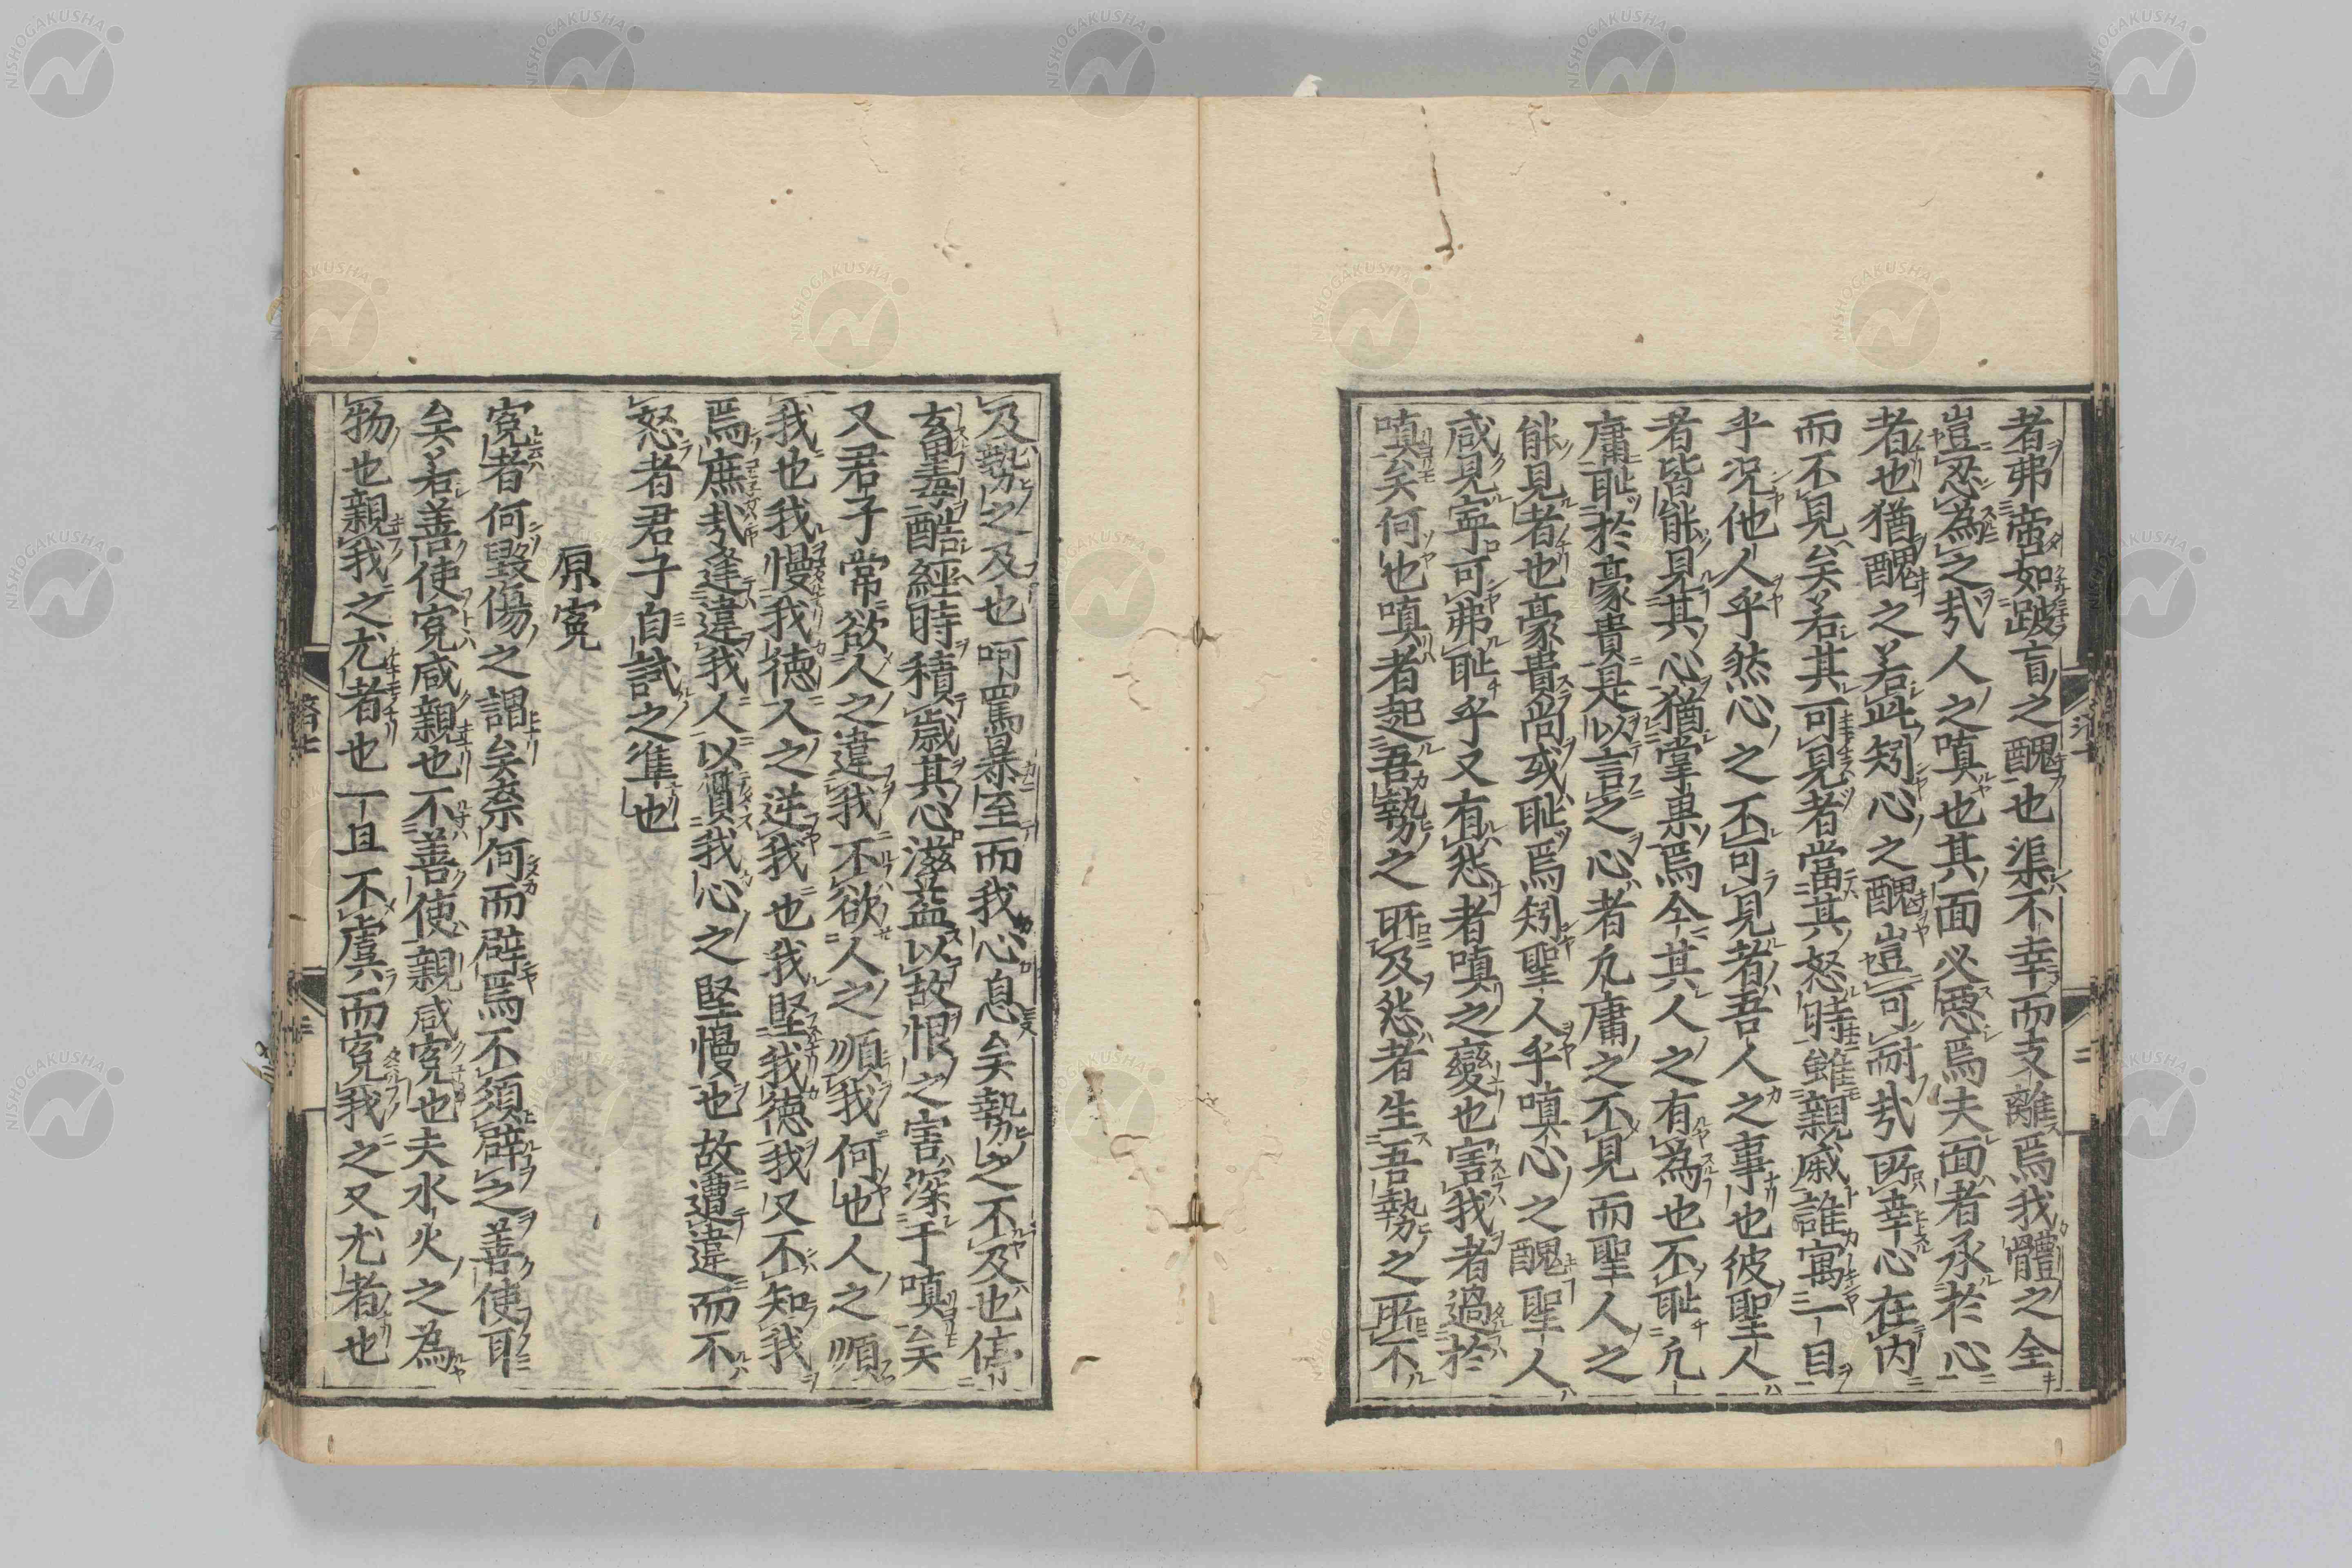 者弗啻如跛盲之醜也渠不幸而支離焉我體之全
豈忍為之㢤人之嗔也其面必惡焉夫面者承於心
者也猶醜之若此矧心之醜豈可耐㢤所幸心在内
而不見矣若其可見者當其怒時雖親戚誰寓一目
乎況他人乎然心之不可見者吾人之事也彼聖人
者皆能見其心猶掌菓焉今其人之有為也不耻凢
庸耻於豪貴是以言之心者凢庸之不見而聖人之
能見者也豪貴尚或耻焉矧聖人乎嗔心之醜聖人
咸見寧可弗耻乎又有愁者嗔之變也害我者過於
嗔矣何也嗔者起吾勢之所及愁者生吾勢之所不
及勢之及也呵罵暴至而我心息矣勢之不及也停
畜毒酷經時積歲其心滋益以故恨之害深于嗔矣
又君子常欲人之違我不欲人之順我何也人之順
我也我慢我德人之逆我也我堅我德我又不知我
焉庶㢤逢違我人以質我心之堅慢也故遭違而不
怒者君子自試之準也
原寃
寃者何毀傷之謂矣奈何而辟焉不須辟之善使耶
矣若善使寃咸親也不善使親咸寃也夫水火之為
物也親我之尤者也一旦不虞而寃我之又尤者也